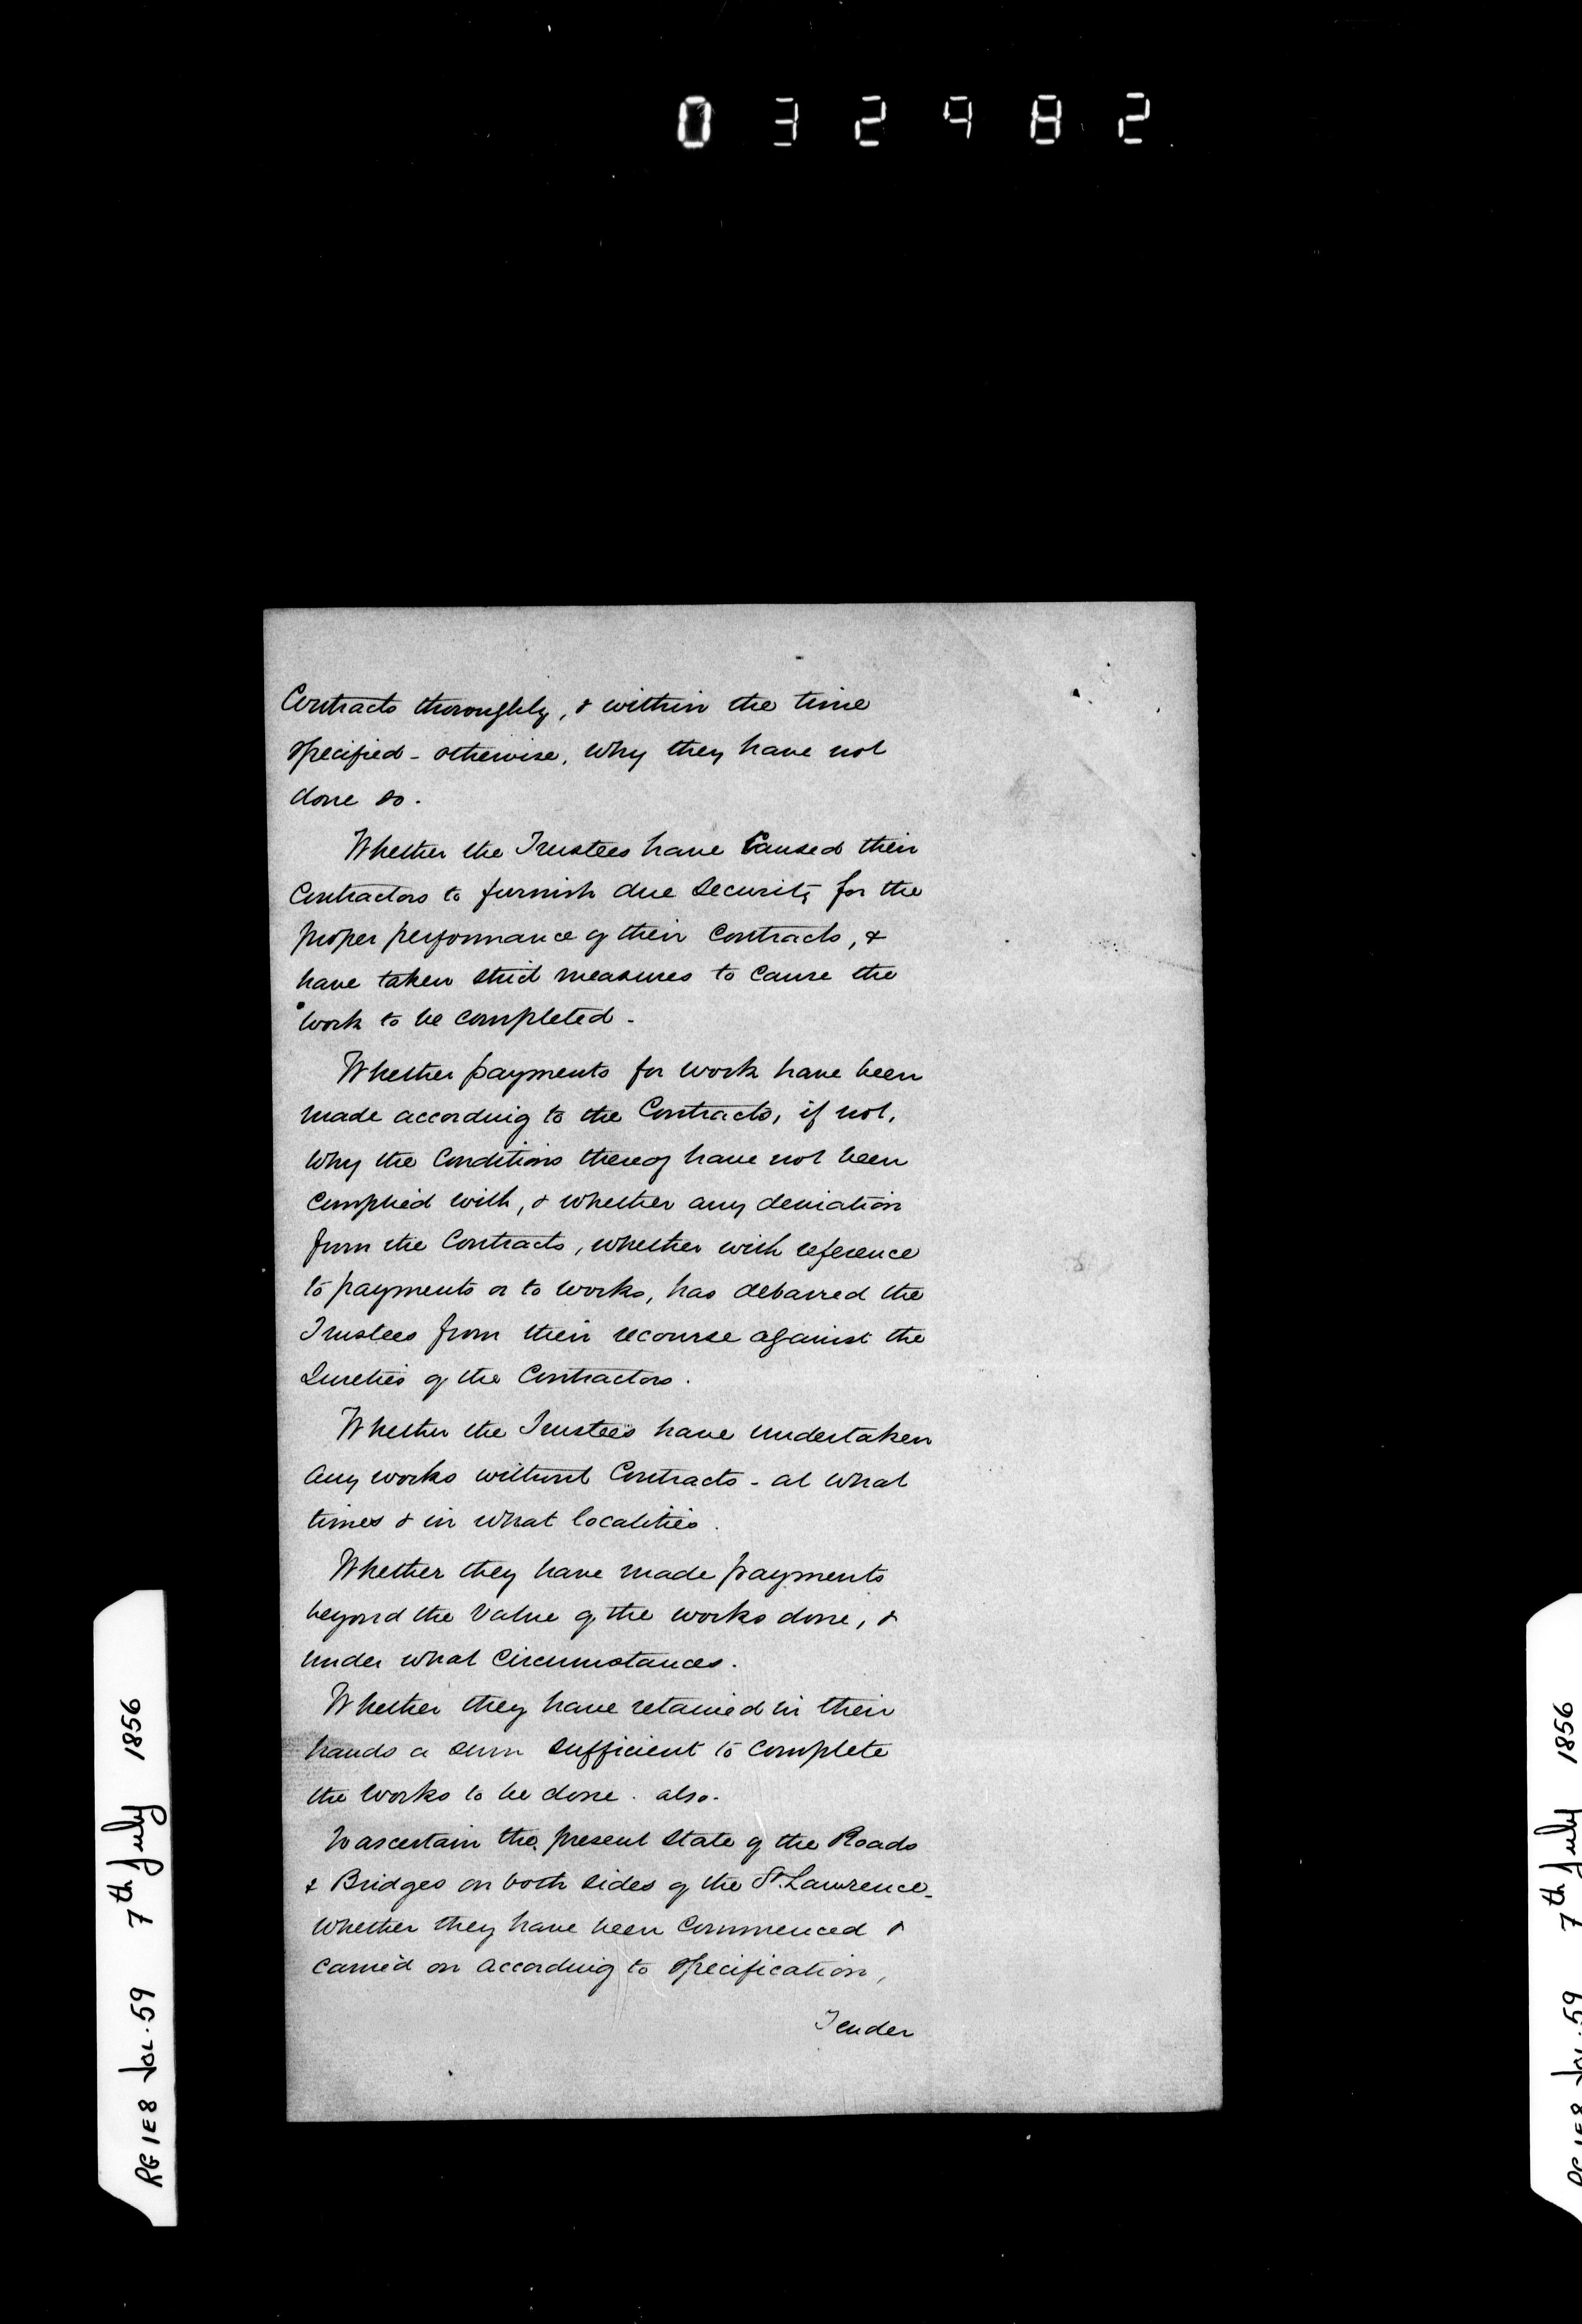 032982
Contracts thoroughly, & within the time
specified - otherwise, why they have not
done so.
Whether the Trustees have Caused their
Contractors to furnish due Security for the
proper performance of their Contracts, &
have taken strict measures to Cause the
work to be completed -
Whether payments for work have been
made according to the Contracts, if not,
why the Conditions thereof have not been
Complied with, & whether any deviation
from the Contracts, whether with reference
to payments or to works, has debarred the
Trustees from their recourse against the
Sureties of the Contractors.
Whether the Trustees have undertaken
any works without Contracts - at what
times & in what localities.
Whether they have made payments
beyond the value of the works done, &
under what Circumstances.
Whether they have retained in their
hands a sum sufficient to Complete
the works to be done. also.
To ascertain the present State of the Roads
& Bridges on both sides of the St. Lawrence -
Whether they have been Commenced &
Carried on according to specification,
Tender
RG 1 E8 Vol. 59 7th July 1856
RG 1 E8 Vol. 59 7th July 1856